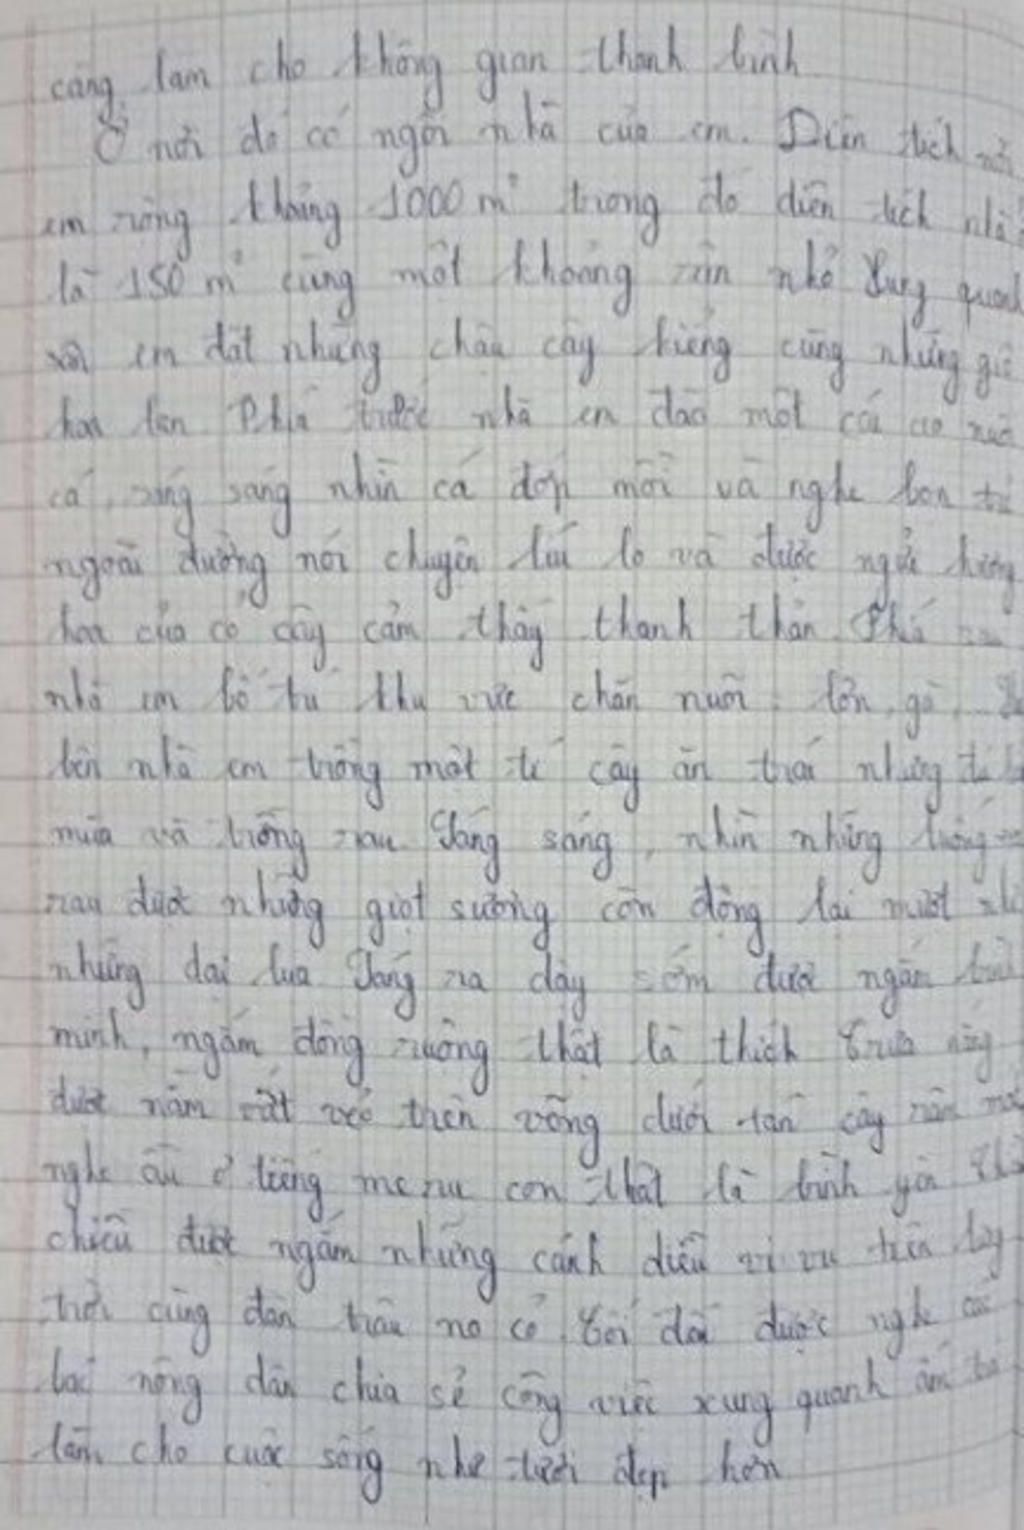 càng làm cho không gian thanh bình
Ở nơi đó có ngôi nhà của em. Diện tích nơi
em rộng khoảng 1000 m² trong đó diện tích nhà
là 150 m² cùng một khoảng sân nhỏ Xung quanh
em đặt những chậu cây kiểng cùng những giò
hoa lan Phía trước nhà em đào một cái ao nuôi
cá, sáng sáng nhìn cá đớp mồi và nghe bọn trẻ
ngoài đường nói chuyện líu lo và được ngửi hương
hoa của cỏ cây cảm thấy thanh thản. Phía sau
nhà em bố trí khu vực chăn nuôi: lợn, gà
bên nhà em trồng một tí cây ăn trái những
mùa và trồng rau Sáng sáng, nhìn những luống
rau được những giọt sương còn đọng lại mướt như
những dải lụa Sáng ra dậy sớm được ngắm bình
minh, ngắm đồng ruộng thật là thích Trưa nắng
được nằm vắt vẻo trên võng dưới tán cây
nghe ầu ơ tiếng mẹ ru con thật là bình yên
chiều được ngắm những cánh diều vi vu trên bầy
trời cùng đàn trâu no cỏ. Tối đến được nghe các
bác nông dân chia sẻ công việc xung quanh ấm trà
làm cho cuộc sống như tươi đẹp hơn